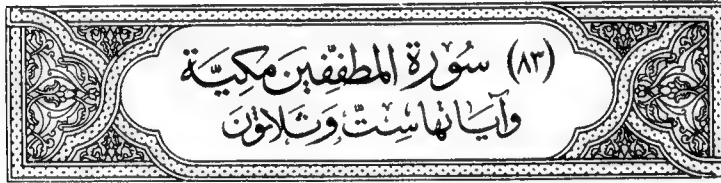 (٨٣) سُورَة المطفِّفِين مَكيَّة
وَآيَاتهَا سِتٌّ وَثَلاثونَ